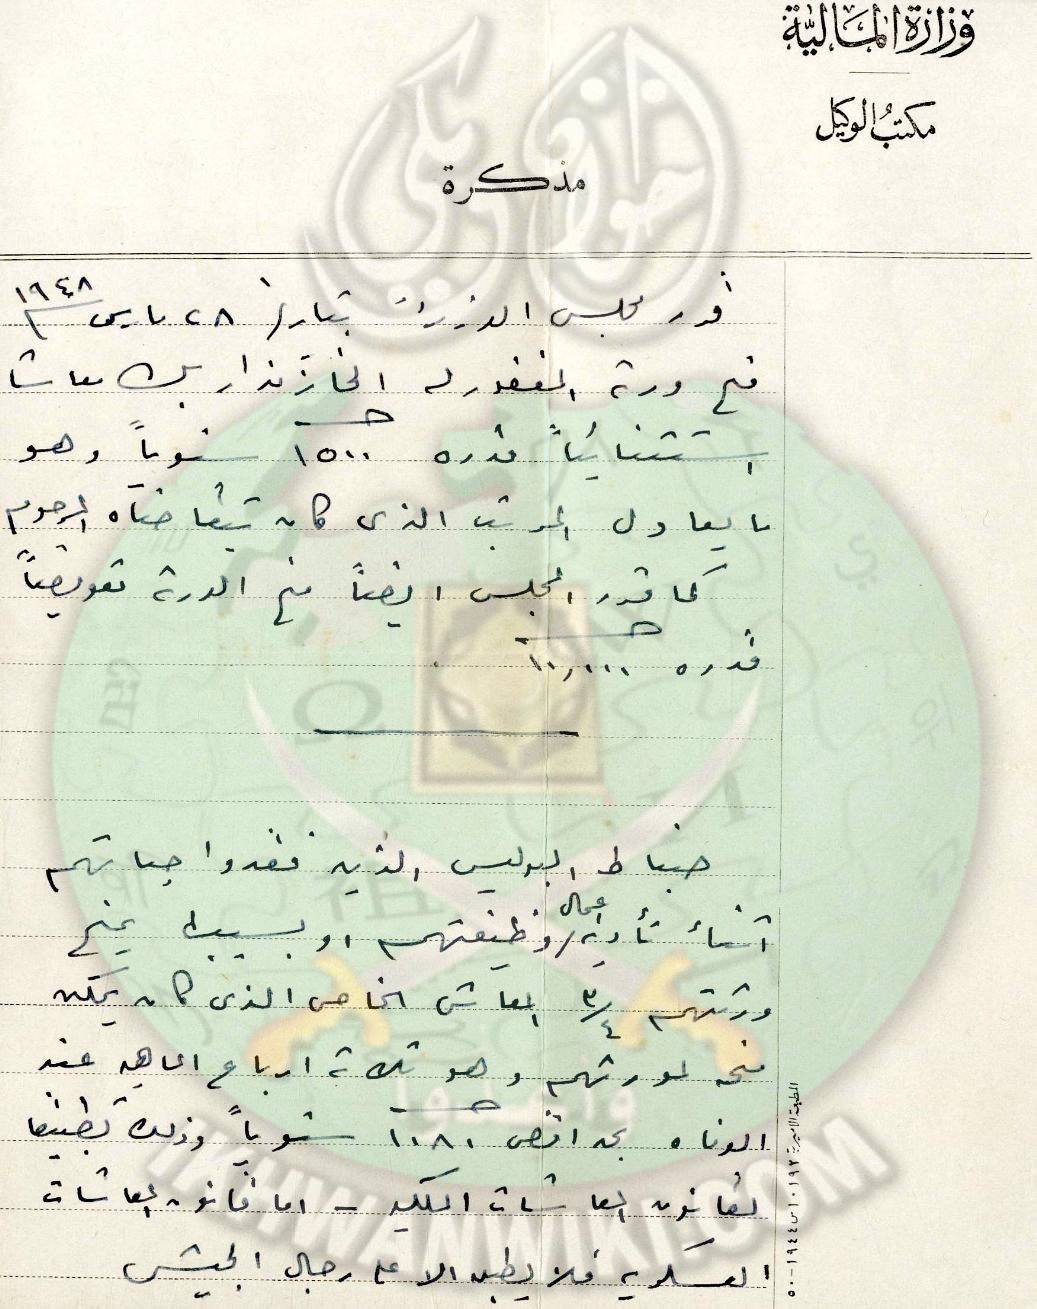 وزارة المالية
مكتب الوكيل
مذكرة
قرر مجلس الوزراء بتاريخ ٢٨ مارس ١٩٤٨
منح ورثة المغفور له الخازندار بك معاشا
استثنائياً قدره ١٥٠٠ جـ سنوياً وهو
ما يعادل المرتب الذى كان يتقاضاه المرحوم
كما قرر المجلس ايضاً منح الورثة تعويضاً
قدره ١٠,٠٠٠ جـ
ضباط البوليس الذين فقدوا حياتهم
اثناء تأدية اعمال وظيفتهم او بسببها يمنح
ورثتهم ٣/٤ المعاش الخاص الذى كان يمكن
منحه لمورثهم وهو ثلاثة ارباع الماهية عند
الوفاه بحد اقصى ١٠٨٠ جـ سنوياً وذلك تطبيقا
لقانون المعاشات الملكية - اما قانون المعاشات
العسكرية فلا يطبق الا على رجال الجيش
إخوان ويكي
وأعدوا
IKHWANWIKI.COM